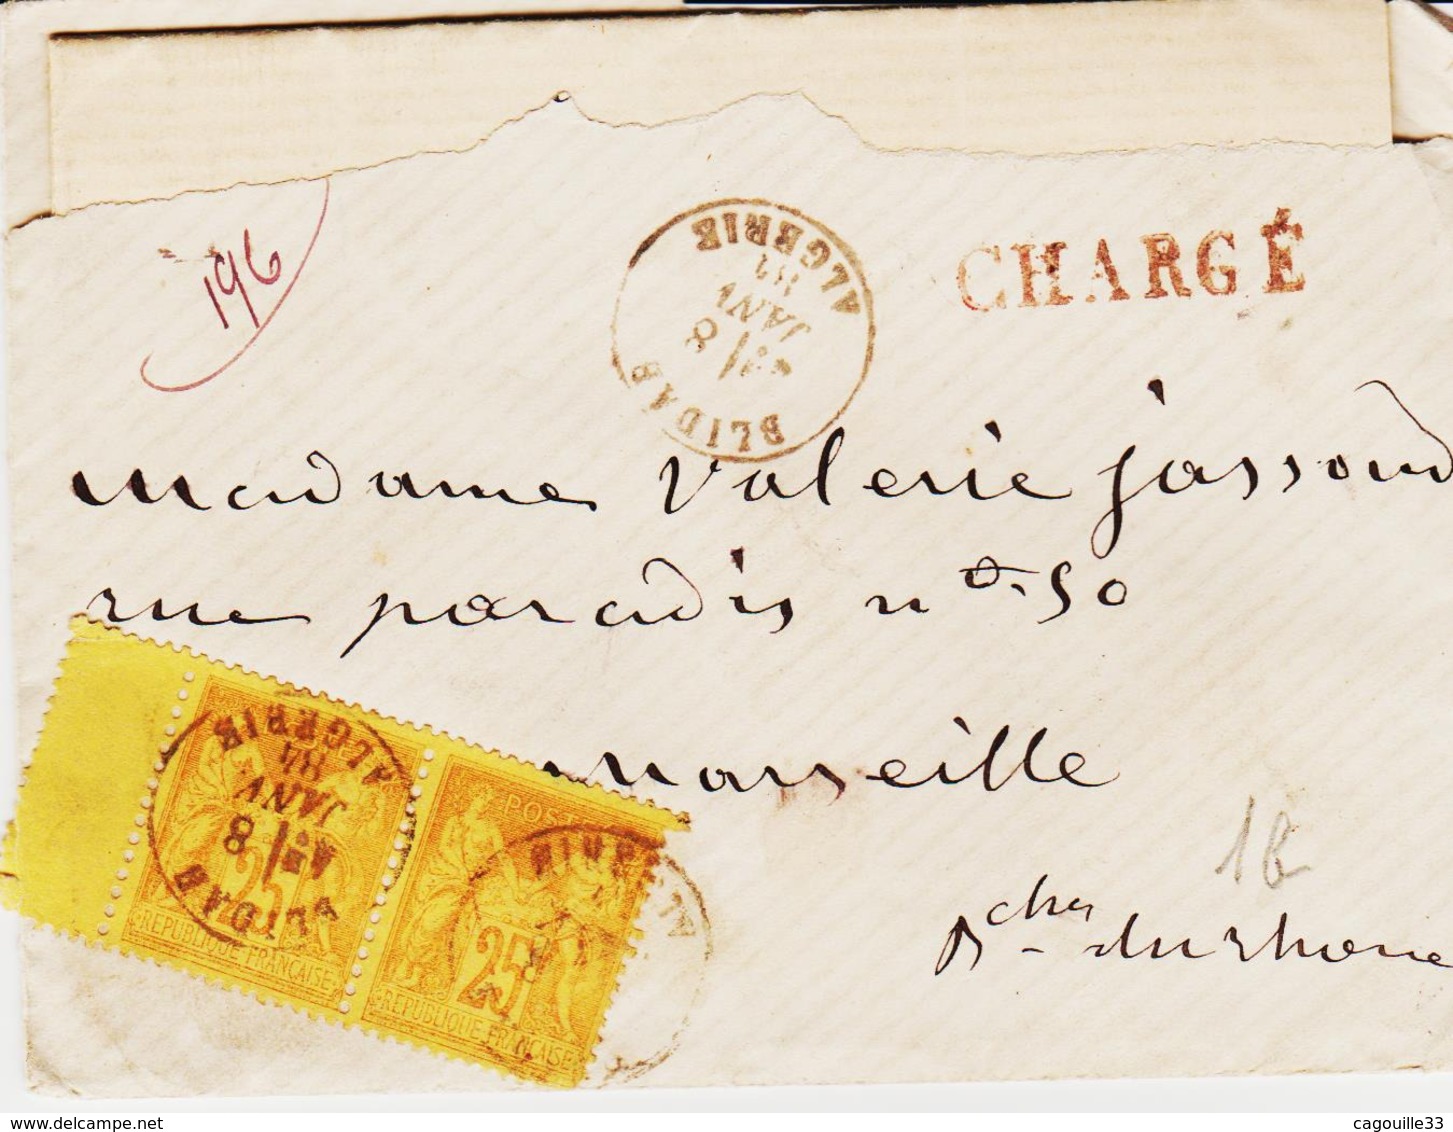 196
ALGERIE
8
JANV
BLIDAH
CHARGÉ
Madame Valerie Jassoud
rue paradis no. 50
marseille
Bches du rhone
18
ALGERIE
84
JANV
8
BLIDAH
25
REPUBLIQUE FRANÇAISE
POSTES
25
REPUBLIQUE FRANÇAISE
delcampe.net
cagouille33